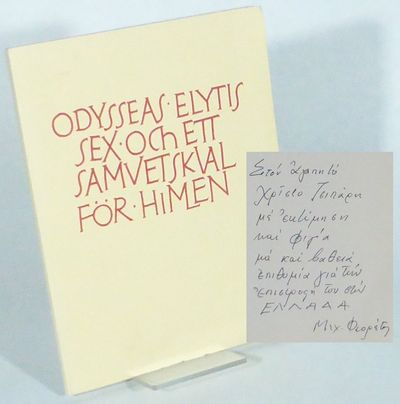 ODYSSEAS · ELYTIS
SEX · OCH ETT
SAMVETSKVAL
FÖR · HIMLEN
Στόν ἀγαπητό
Χρίστο Τσιπάρη
μέ ἐκτίμηση
καί φιλία
μά καί βαθειά
ἐπιθυμία γιά τήν
ἐπιστροφή του στήν
ΕΛΛΑΔΑ
Μιχ.